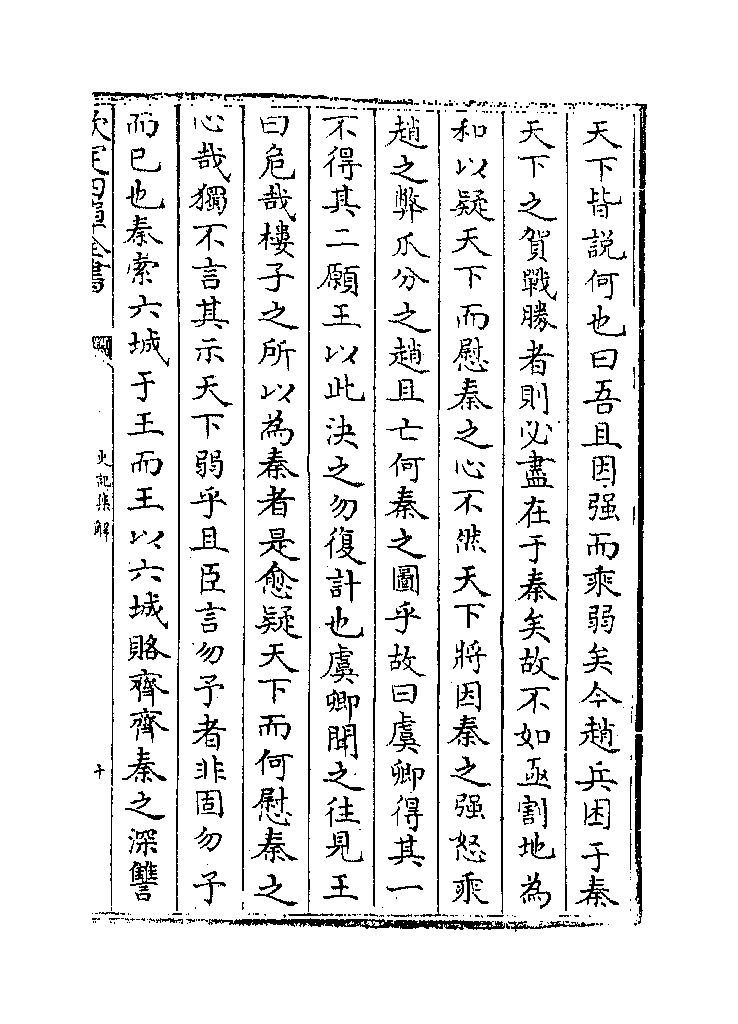 天下皆説何也曰吾且因强而乘弱矣今趙兵困于秦
天下之賀戰勝者則必盡在于秦矣故不如亟割地為
和以疑天下而慰秦之心不然天下將因秦之强怒乘
趙之弊爪分之趙且亡何秦之圖乎故曰虞卿得其一
不得其二願王以此決之勿復計也虞卿聞之往見王
曰危哉樓子之所以為秦者是愈疑天下而何慰秦之
心哉獨不言其示天下弱乎且臣言勿予者非固勿予
而已也秦索六城于王而王以六城賂齊齊秦之深讐
欽定四庫全書
史記集解
十